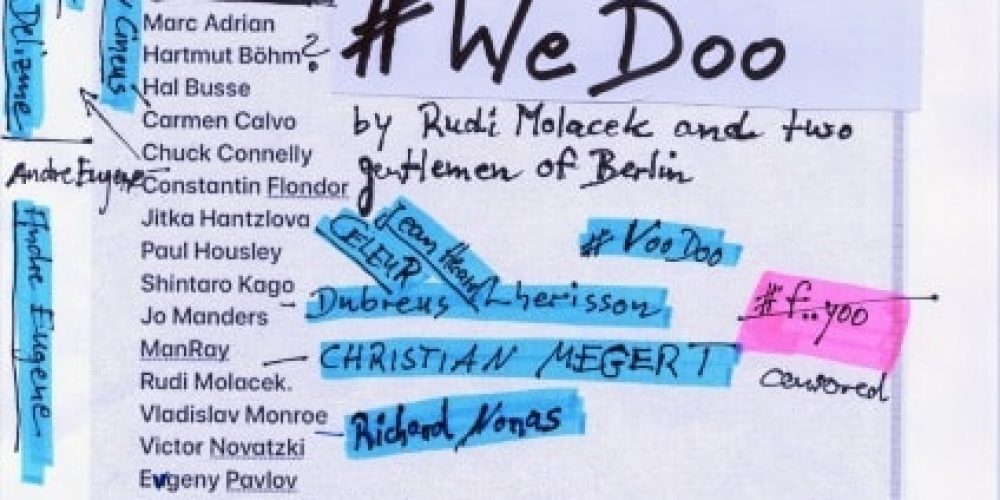 Marc Adrian
Hartmut Böhm?
Hal Busse
Carmen Calvo
Chuck Connelly
Constantin Flondor
Jitka Hantzlova
Paul Housley
Shintaro Kago
Jo Manders
ManRay
Rudi Molacek.
Vladislav Monroe
Victor Novatzki
Evgeny Pavlov
#WeDoo
by Rudi Molacek and two
gentlemen of Berlin
Andre Eugene
Andre Eugene
CELEUR
Jean Herard
# VooDoo
Dubreus Lherisson
#f..yoo
CHRISTIAN MEGERT
censored
Richard Nonas